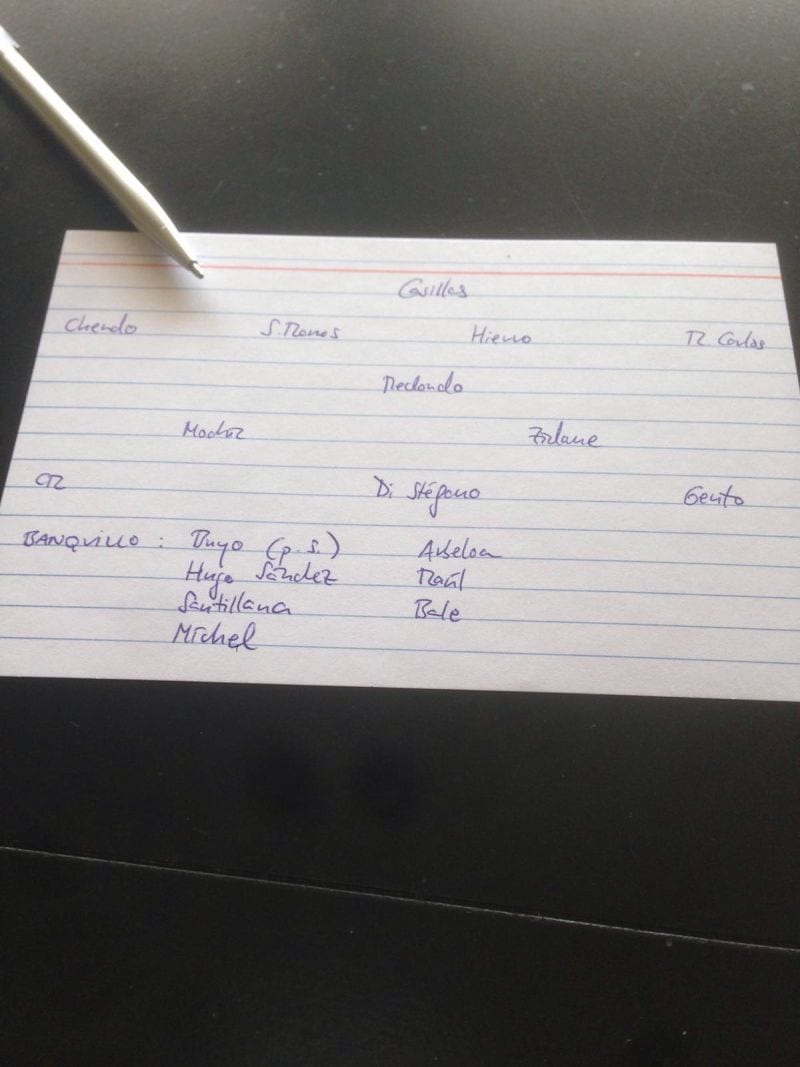 Casillas
Chendo S. Ramos Hierro R. Carlos
Redondo
Modric Zidane
CR Di Stéfano Gento
BANQUILLO : Buyo (p.s.) Arbeloa
Hugo Sánchez Raúl
Santillana Bale
Michel